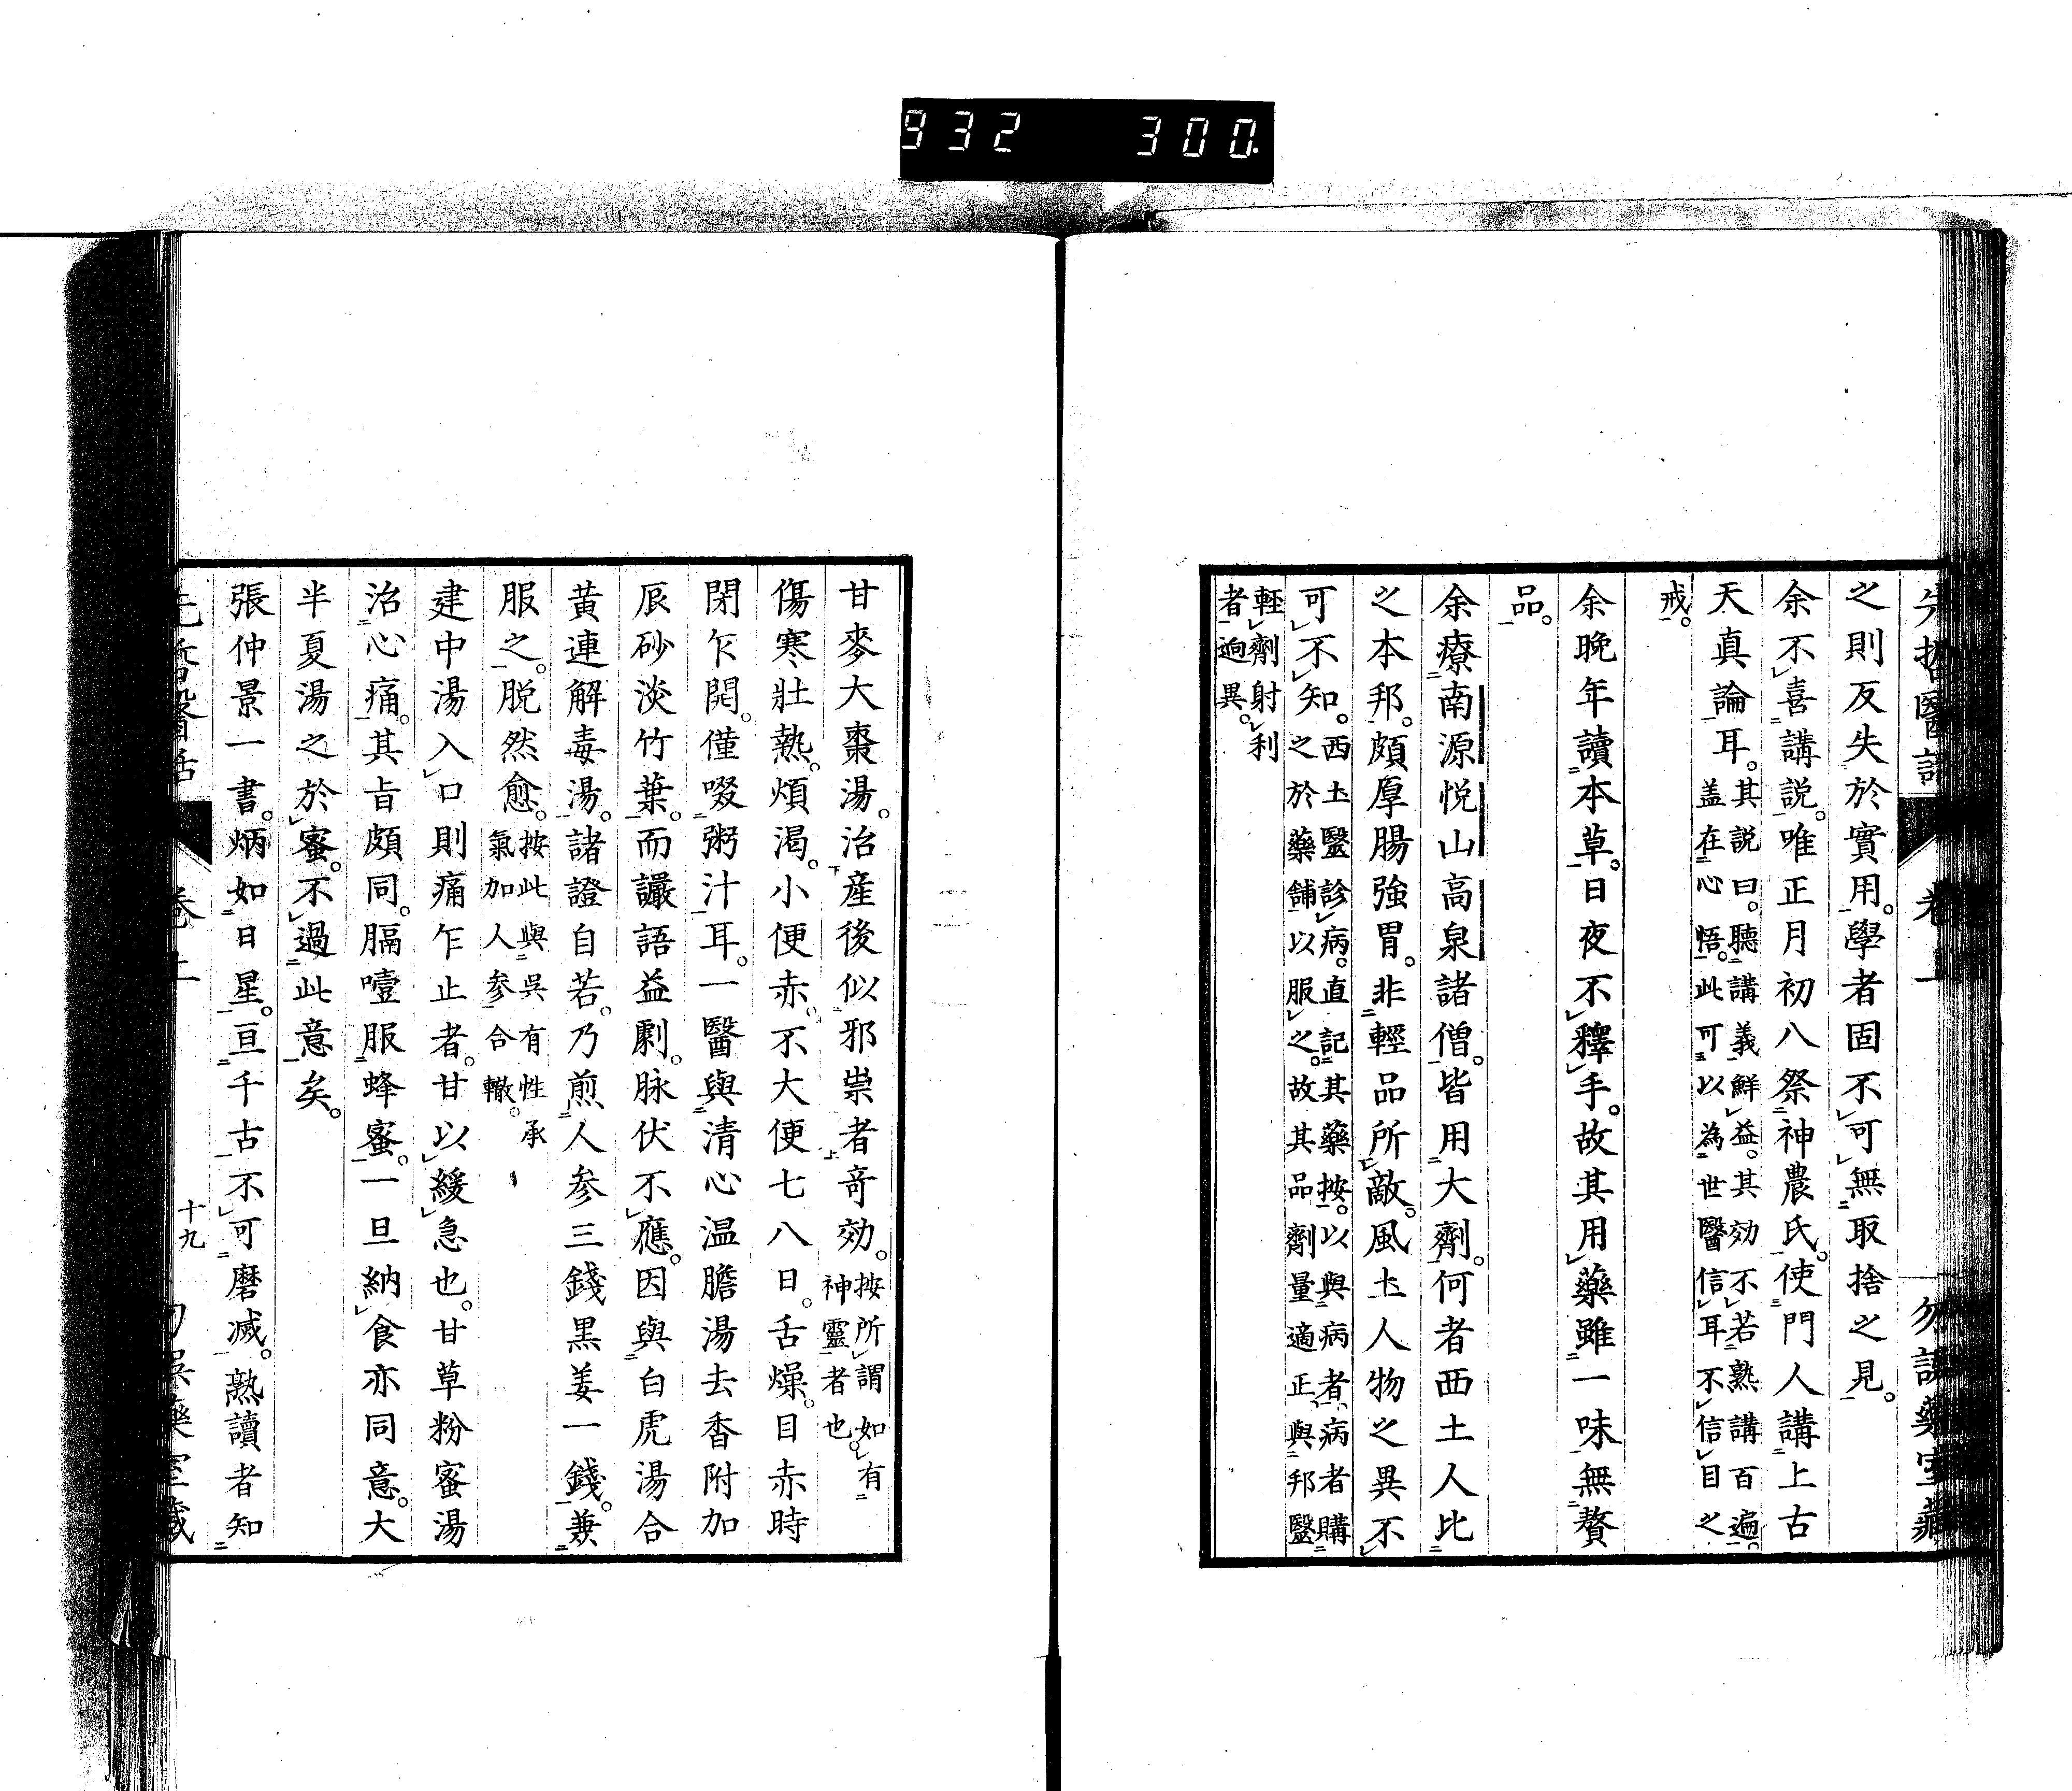 932 300.
先哲醫話 卷上 勿誤藥室藏
之則反失於實用。學者固不可無取捨之見。
余不喜講説。唯正月初八祭神農氏。使門人講上古
天真論耳。其説曰。聽講義鮮益。其効不若熟講百遍。
盖在心悟。此可以為世醫信耳不信目之
戒。
余晩年讀本草。日夜不釋手。故其用藥雖一味無贅
品。
余療南源悦山高泉諸僧。皆用大劑。何者西土人比
之本邦。頗厚腸強胃。非輕品所敵。風土人物之異不
可不知。西土醫診病。直記其藥按。以與病者、病者購
之於藥舗以服之。故其品劑量適正。與邦醫
輕劑射利
者逈異。
甘麥大棗湯。治產後似邪祟者奇効。按所謂如有
神靈者也。
傷寒壯熱。煩渇。小便赤。不大便七八日。舌燥。目赤時
閉乍開。僅啜粥汁耳。一醫與清心温膽湯去香附加
辰砂淡竹葉。而讝語益劇。脉伏不應。因與白虎湯合
黄連解毒湯。諸證自若。乃煎人参三錢黒姜一錢。兼
服之。脱然愈。按此與呉有性承
氣加人参合轍。
建中湯入口則痛乍止者。甘以緩急也。甘草粉蜜湯
治心痛。其旨頗同。膈噎服蜂蜜。一旦納食亦同意。大
半夏湯之於蜜。不過此意矣。
張仲景一書。炳如日星。亘千古不可磨滅。熟讀者知
先哲醫話 卷上 十九 勿誤藥室藏